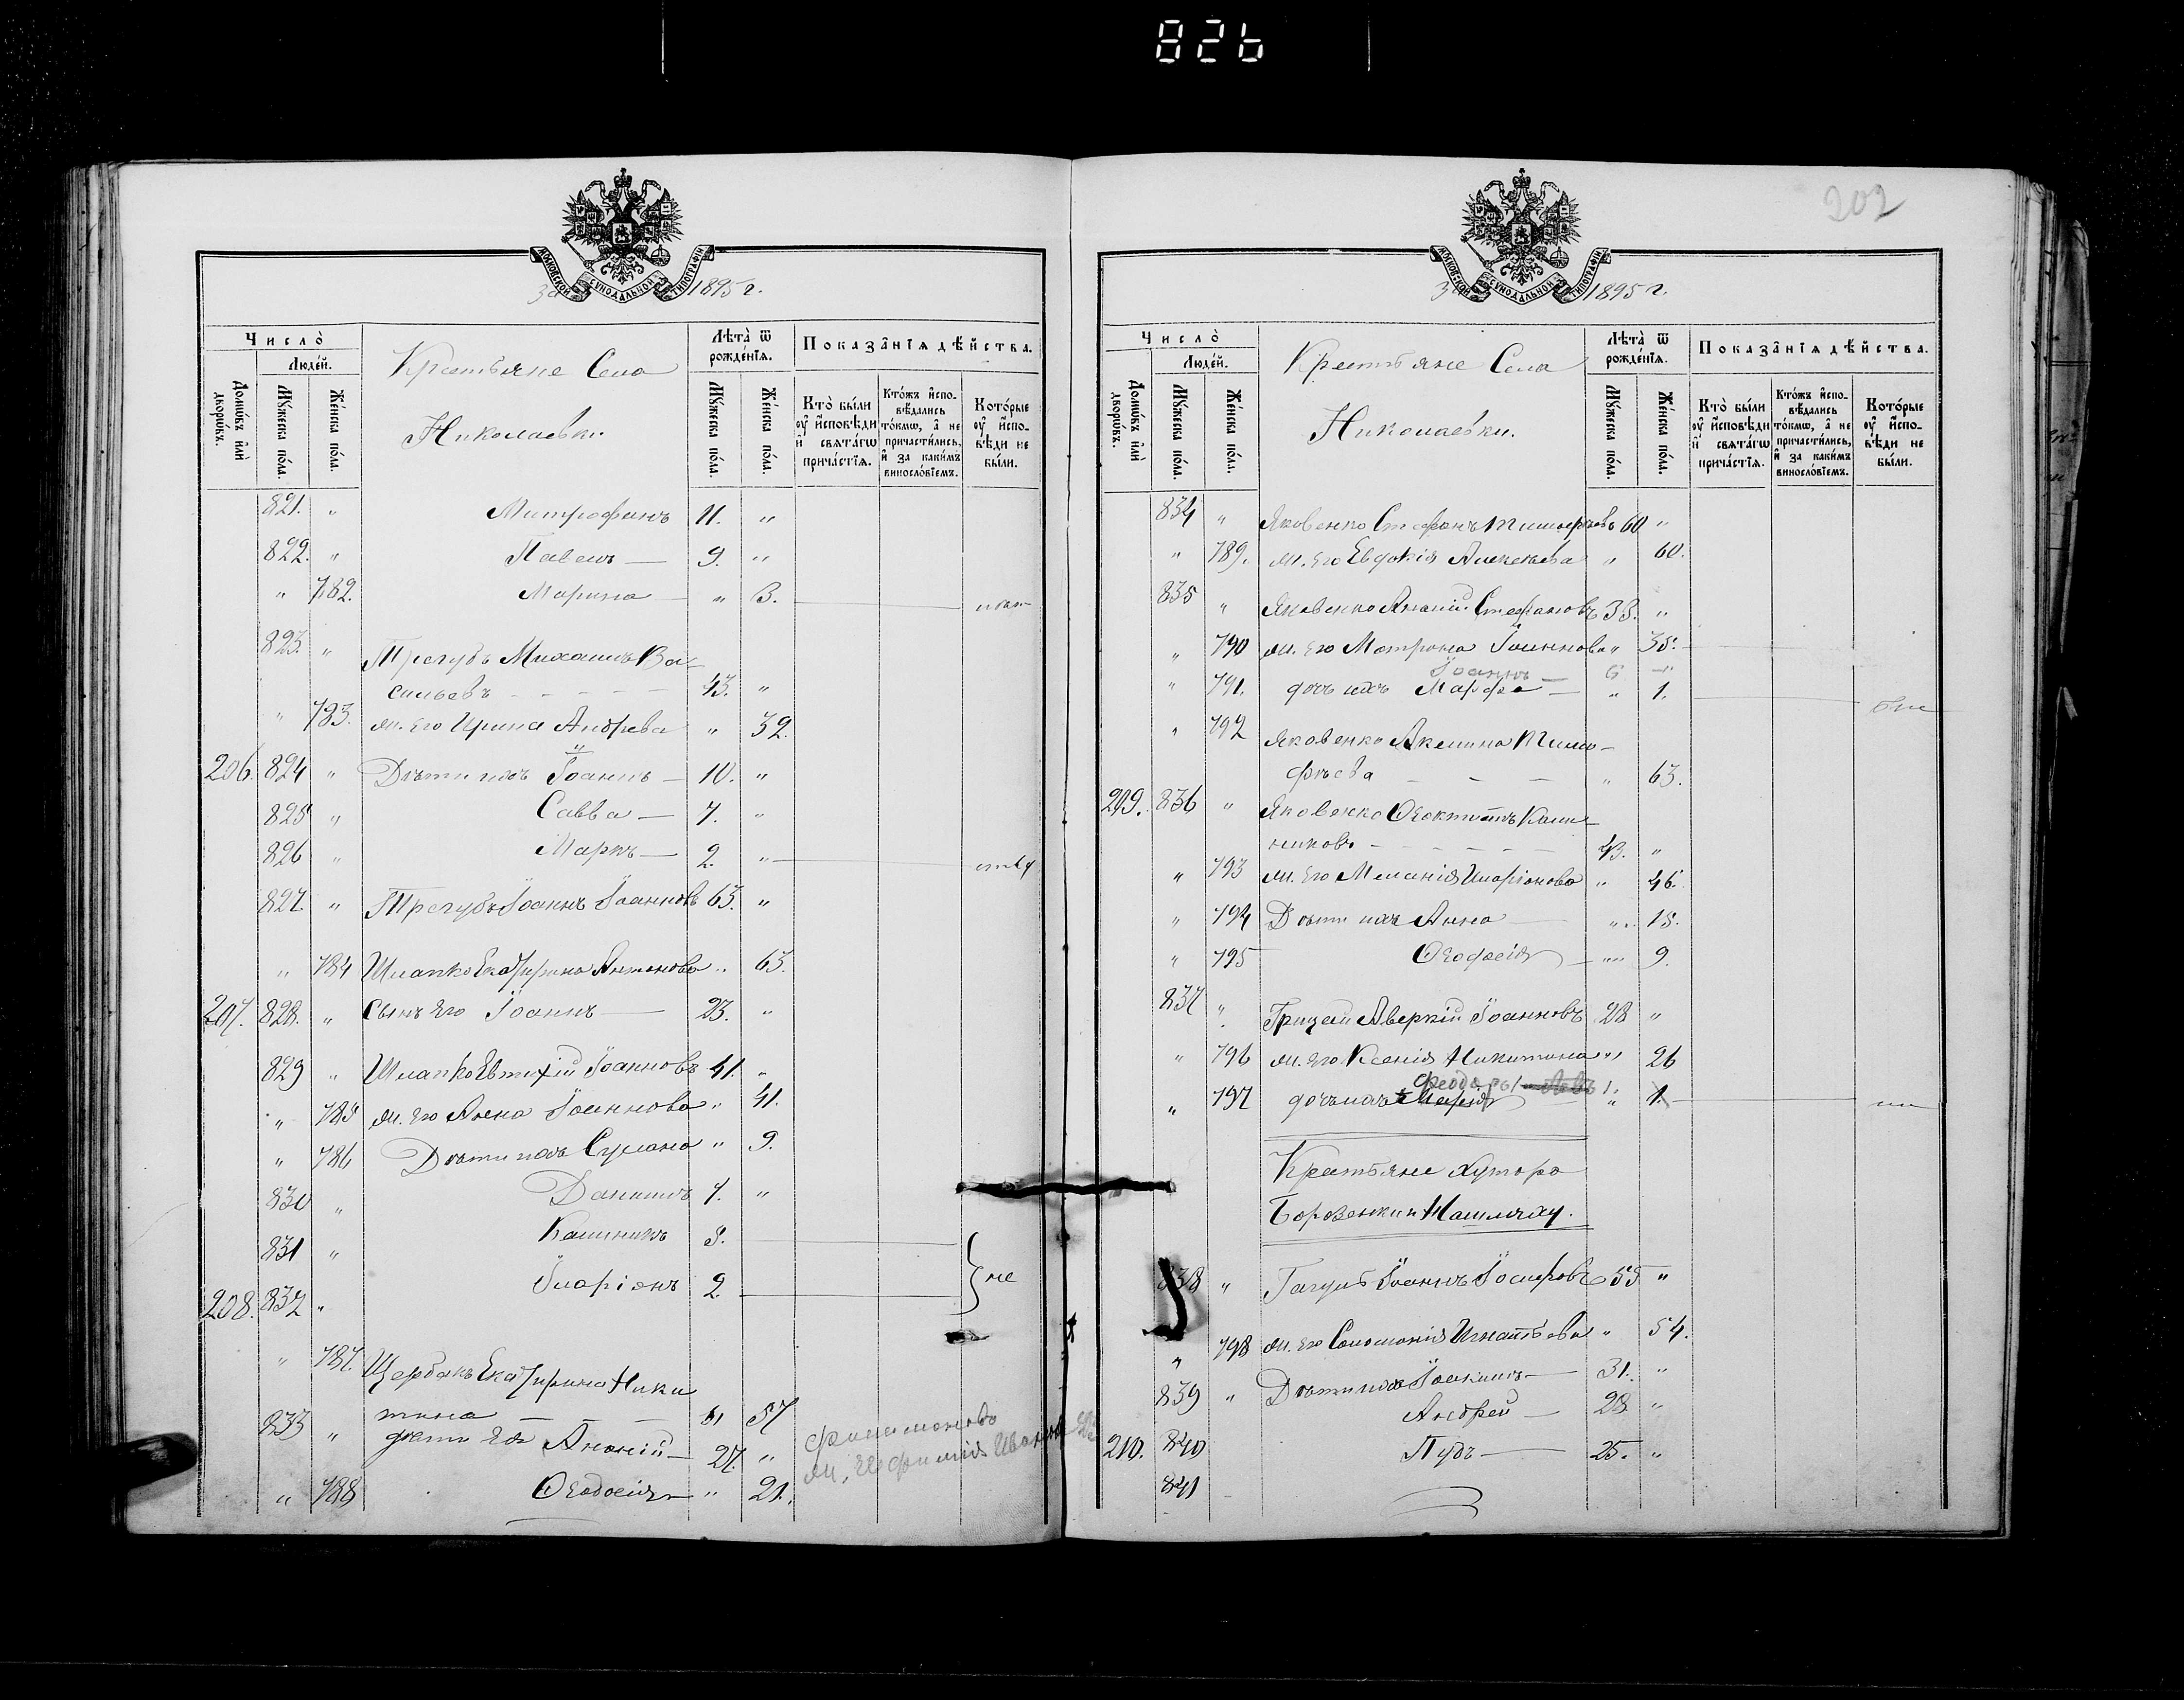 826
МОСКОВСКОЙ СУНОДАЛЬНОЙ ТИПОГРАФІИ
За 1895 г.
Число̀
Людéй.
Домѡ́въ и҆лѝ дворѡ́въ.
Мꙋ́жеска по́ла.
Же́нска по́ла.
Крестьяне Села
Николаевки
Лѣта̀ ѿ рожде́нїѧ.
Мꙋ́жеска по́ла.
Же́нска по́ла.
Показа̂нїѧ дѣ́йства.
Кто̀ бы́ли ᲂу҆ и҆́сповѣди и҆ свѧта́гѡ прича́стїѧ.
Кто́жъ и҆спо-вѣ́дались то́кмѡ, а҆ не причасти́лись, и҆ за каки́мъ виносло́вїемъ.
Кото́рые ᲂу҆ и҆́спо-вѣди не бы́ли.
821. " Митрофанъ 11. "
822. " Павелъ — 9. "
" 782. Марина — " 3.
823. " Трегубъ Михаилъ Ва-
сильевъ - - - - - 43. "
" 783. ж. его Ирина Андреева " 32.
206. 824 " Дѣти ихъ Іоаннъ — 10. "
825 " Савва — 7. "
826 " Маркъ — 2. "
827. " Трегубъ Іоаннъ Іоанновъ 63. "
" 784 Шлапко Екатирина Антонова " 63.
207. 828. " сынъ его Іоаннъ — 23. "
829 " Шлапко Евтихій Іоанновъ 41. "
" 785 ж. его Анна Іоаннова " 41.
" 786 Дѣти ихъ Сусана " 9.
830 " Даниилъ 7. "
831 " Калиникъ
208. 832 " Иларіонъ 2. не
" 787. Щербакъ Екатирина Ники
тина — — — 57
833 " дѣти ея Ананій — 27. " Филимоновъ
" 788 Ѳеодосія — " 21. ж. Ефимія Иванов
202
МОСКОВСКОЙ СУНОДАЛЬНОЙ ТИПОГРАФІИ
За 1895 г.
Число̀
Людéй.
Домѡ́въ и҆лѝ дворѡ́въ.
Мꙋ́жеска по́ла.
Же́нска по́ла.
Крестьяне Села
Николаевки.
Лѣта̀ ѿ рожде́нїѧ.
Мꙋ́жеска по́ла.
Же́нска по́ла.
Показа̂нїѧ дѣ́йства.
Кто̀ бы́ли ᲂу҆ и҆́сповѣди и҆ свѧта́гѡ прича́стїѧ.
Кто́жъ и҆спо-вѣ́дались то́кмѡ, а҆ не причасти́лись, и҆ за каки́мъ виносло́вїемъ.
Кото́рые ᲂу҆ и҆́спо-вѣди не бы́ли.
834 " Яковенко Стефанъ Тимофеевъ 60 "
" 789. ж. его Евдокія Алексѣева " 60.
835 " Яковенко Ананій Стефановъ 33. "
" 790 ж. его Матрона Іоаннова " 35.
Іоаннъ — 6
" 791. дочь ихъ Марфа — " 1.
" 792 Яковенко Акелина Тимо-
фѣева — — — " 63.
209. 836 " Яковенко Ѳеоктистъ Кали
никовъ - - - - - 43. "
" 793 ж. его Меланія Иларіонова " 46.
" 794 Дѣти ихъ Анна — " 15.
" 795 Ѳеодосія — " 9.
837 " Грицай Аверкій Іоанновъ 28 "
" 796 ж. его Ксенія Никитина " 26
Феодоръ 1.
" 797 дочь ихъ Марія " 1.
Крестьяне хутора
Боровенки
838 " Гагулъ Іоаннъ Іосифовъ 55 "
" 798 ж. его Соломонія Игнатьева " 54.
839 " Дѣти ихъ Іоакимъ — 31. "
210. 840 Андрей — 28. "
841 Пудъ — 25. "